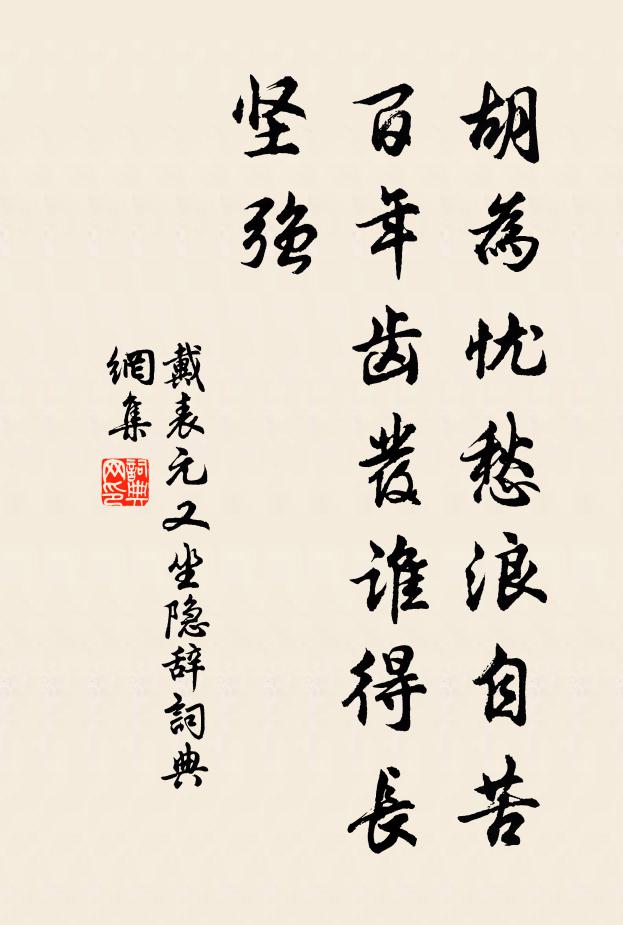 胡為忧愁浪自苦
百年齿發谁得長
坚强
戴表元又坐隐辞詞典
網集
詞典网印